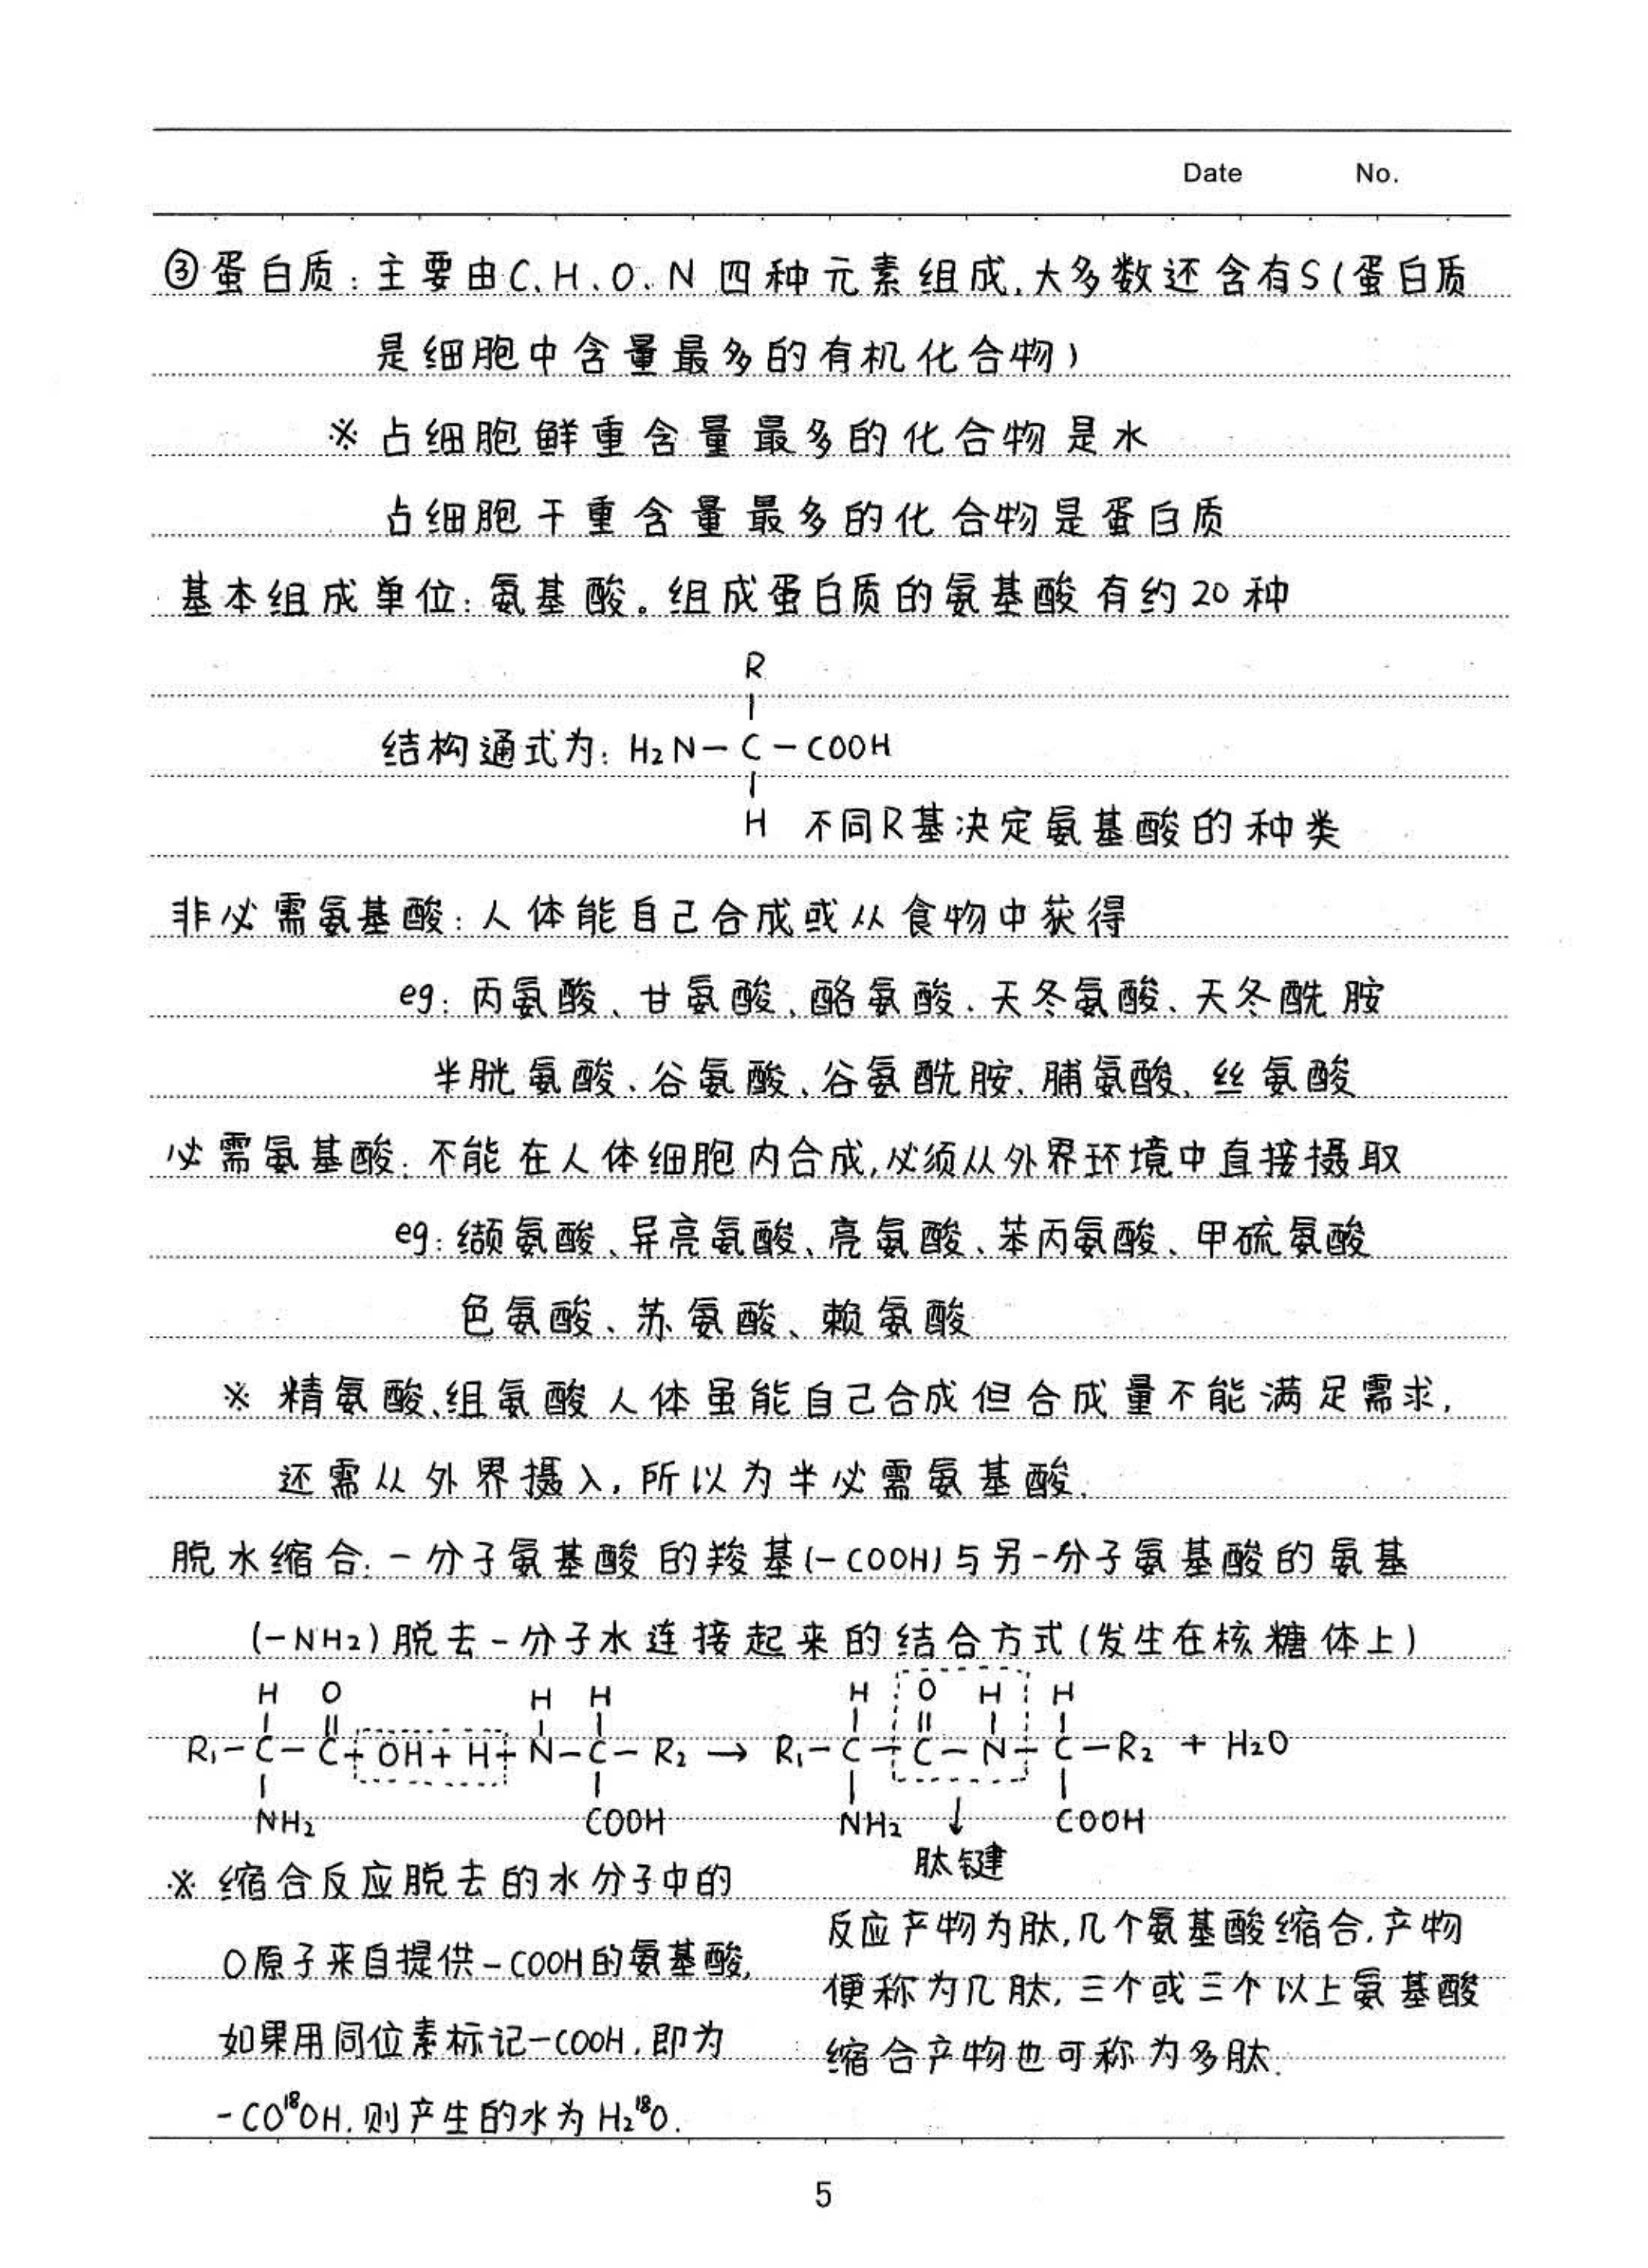 Date No.
③蛋白质：主要由C、H、O、N四种元素组成，大多数还含有S(蛋白质
是细胞中含量最多的有机化合物)
※ 占细胞鲜重含量最多的化合物是水
占细胞干重含量最多的化合物是蛋白质
基本组成单位：氨基酸。组成蛋白质的氨基酸有约20种
R
|
结构通式为：H₂N－C－COOH
|
H 不同R基决定氨基酸的种类
非必需氨基酸：人体能自己合成或从食物中获得
eg：丙氨酸、甘氨酸、酪氨酸、天冬氨酸、天冬酰胺
半胱氨酸、谷氨酸、谷氨酰胺、脯氨酸、丝氨酸
必需氨基酸：不能在人体细胞内合成，必须从外界环境中直接摄取
eg：缬氨酸、异亮氨酸、亮氨酸、苯丙氨酸、甲硫氨酸
色氨酸、苏氨酸、赖氨酸
※ 精氨酸、组氨酸人体虽能自己合成但合成量不能满足需求，
还需从外界摄入，所以为半必需氨基酸.
脱水缩合：一分子氨基酸的羧基(－COOH)与另一分子氨基酸的氨基
(－NH₂)脱去一分子水连接起来的结合方式(发生在核糖体上)
H O H H H O H H
| || | | | || | |
R₁－C－C＋OH＋H＋N－C－R₂ → R₁－C－C－N－C－R₂ ＋ H₂O
| | | ↓ |
NH₂ COOH NH₂ COOH
肽键
※ 缩合反应脱去的水分子中的
O原子来自提供－COOH的氨基酸，
如果用同位素标记－COOH，即为
－CO¹⁸OH，则产生的水为H₂¹⁸O.
反应产物为肽，几个氨基酸缩合，产物
便称为几肽，三个或三个以上氨基酸
缩合产物也可称为多肽.
5